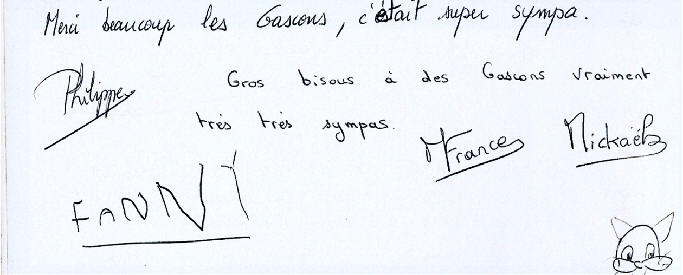 Merci beaucoup les Gascons, c'était super sympa.
Philippe
Gros bisous à des Gascons vraiment
très très sympas.
MFrance
Mickaël
FANNY